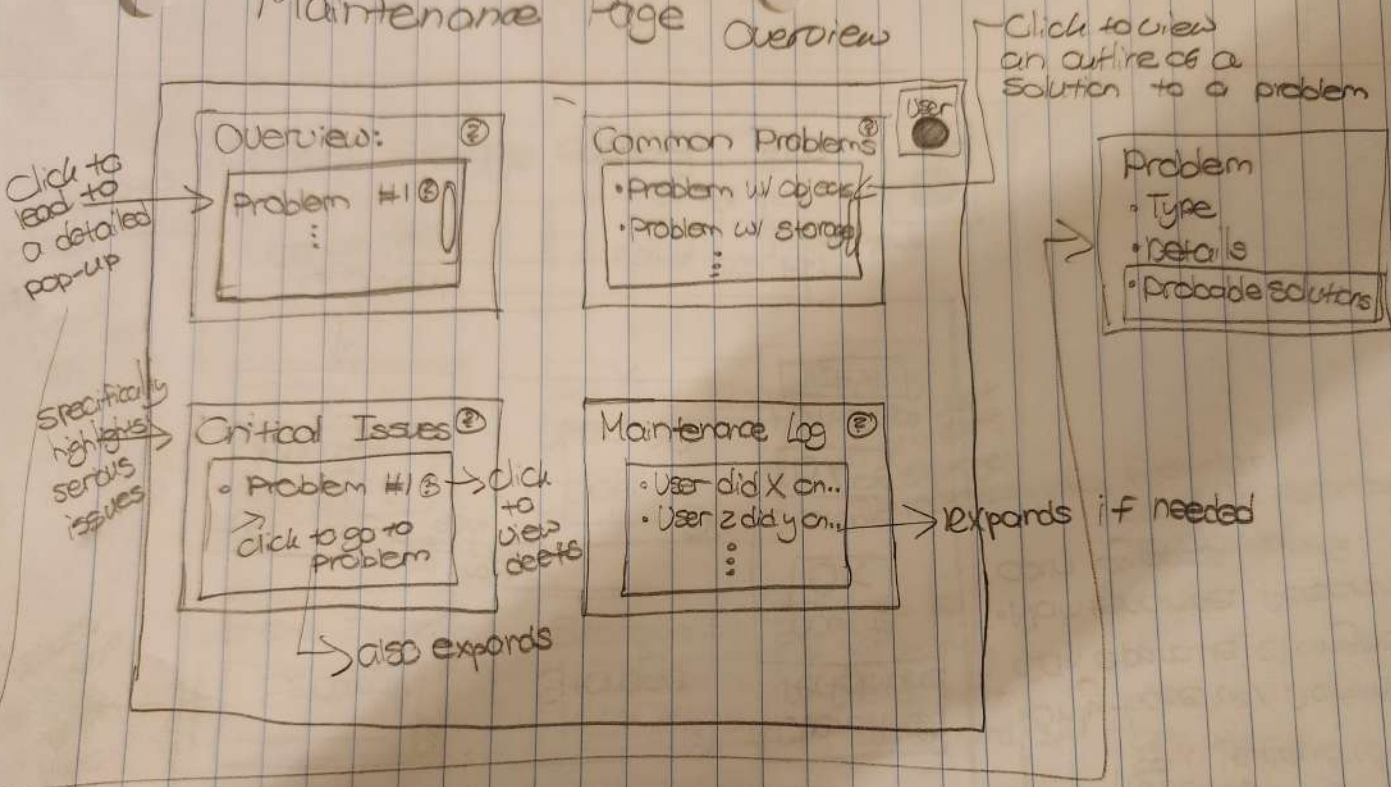 Maintenance Page Overview
Click to view
an outline of a
solution to a problem
User
Overview: ?
Problem #1
Click to
lead to
a detailed
pop-up
Common Problems ?
• Problem w/ objects
• Problem w/ storage
Problem
• Type
• Details
• Probable solutions
specifically
highlights
serious
issues
Critical Issues ?
• Problem #1
click to go to
problem
click
to
view
deets
also expands
Maintenance Log ?
• User did X on..
• User 2 did y on..
expands if needed